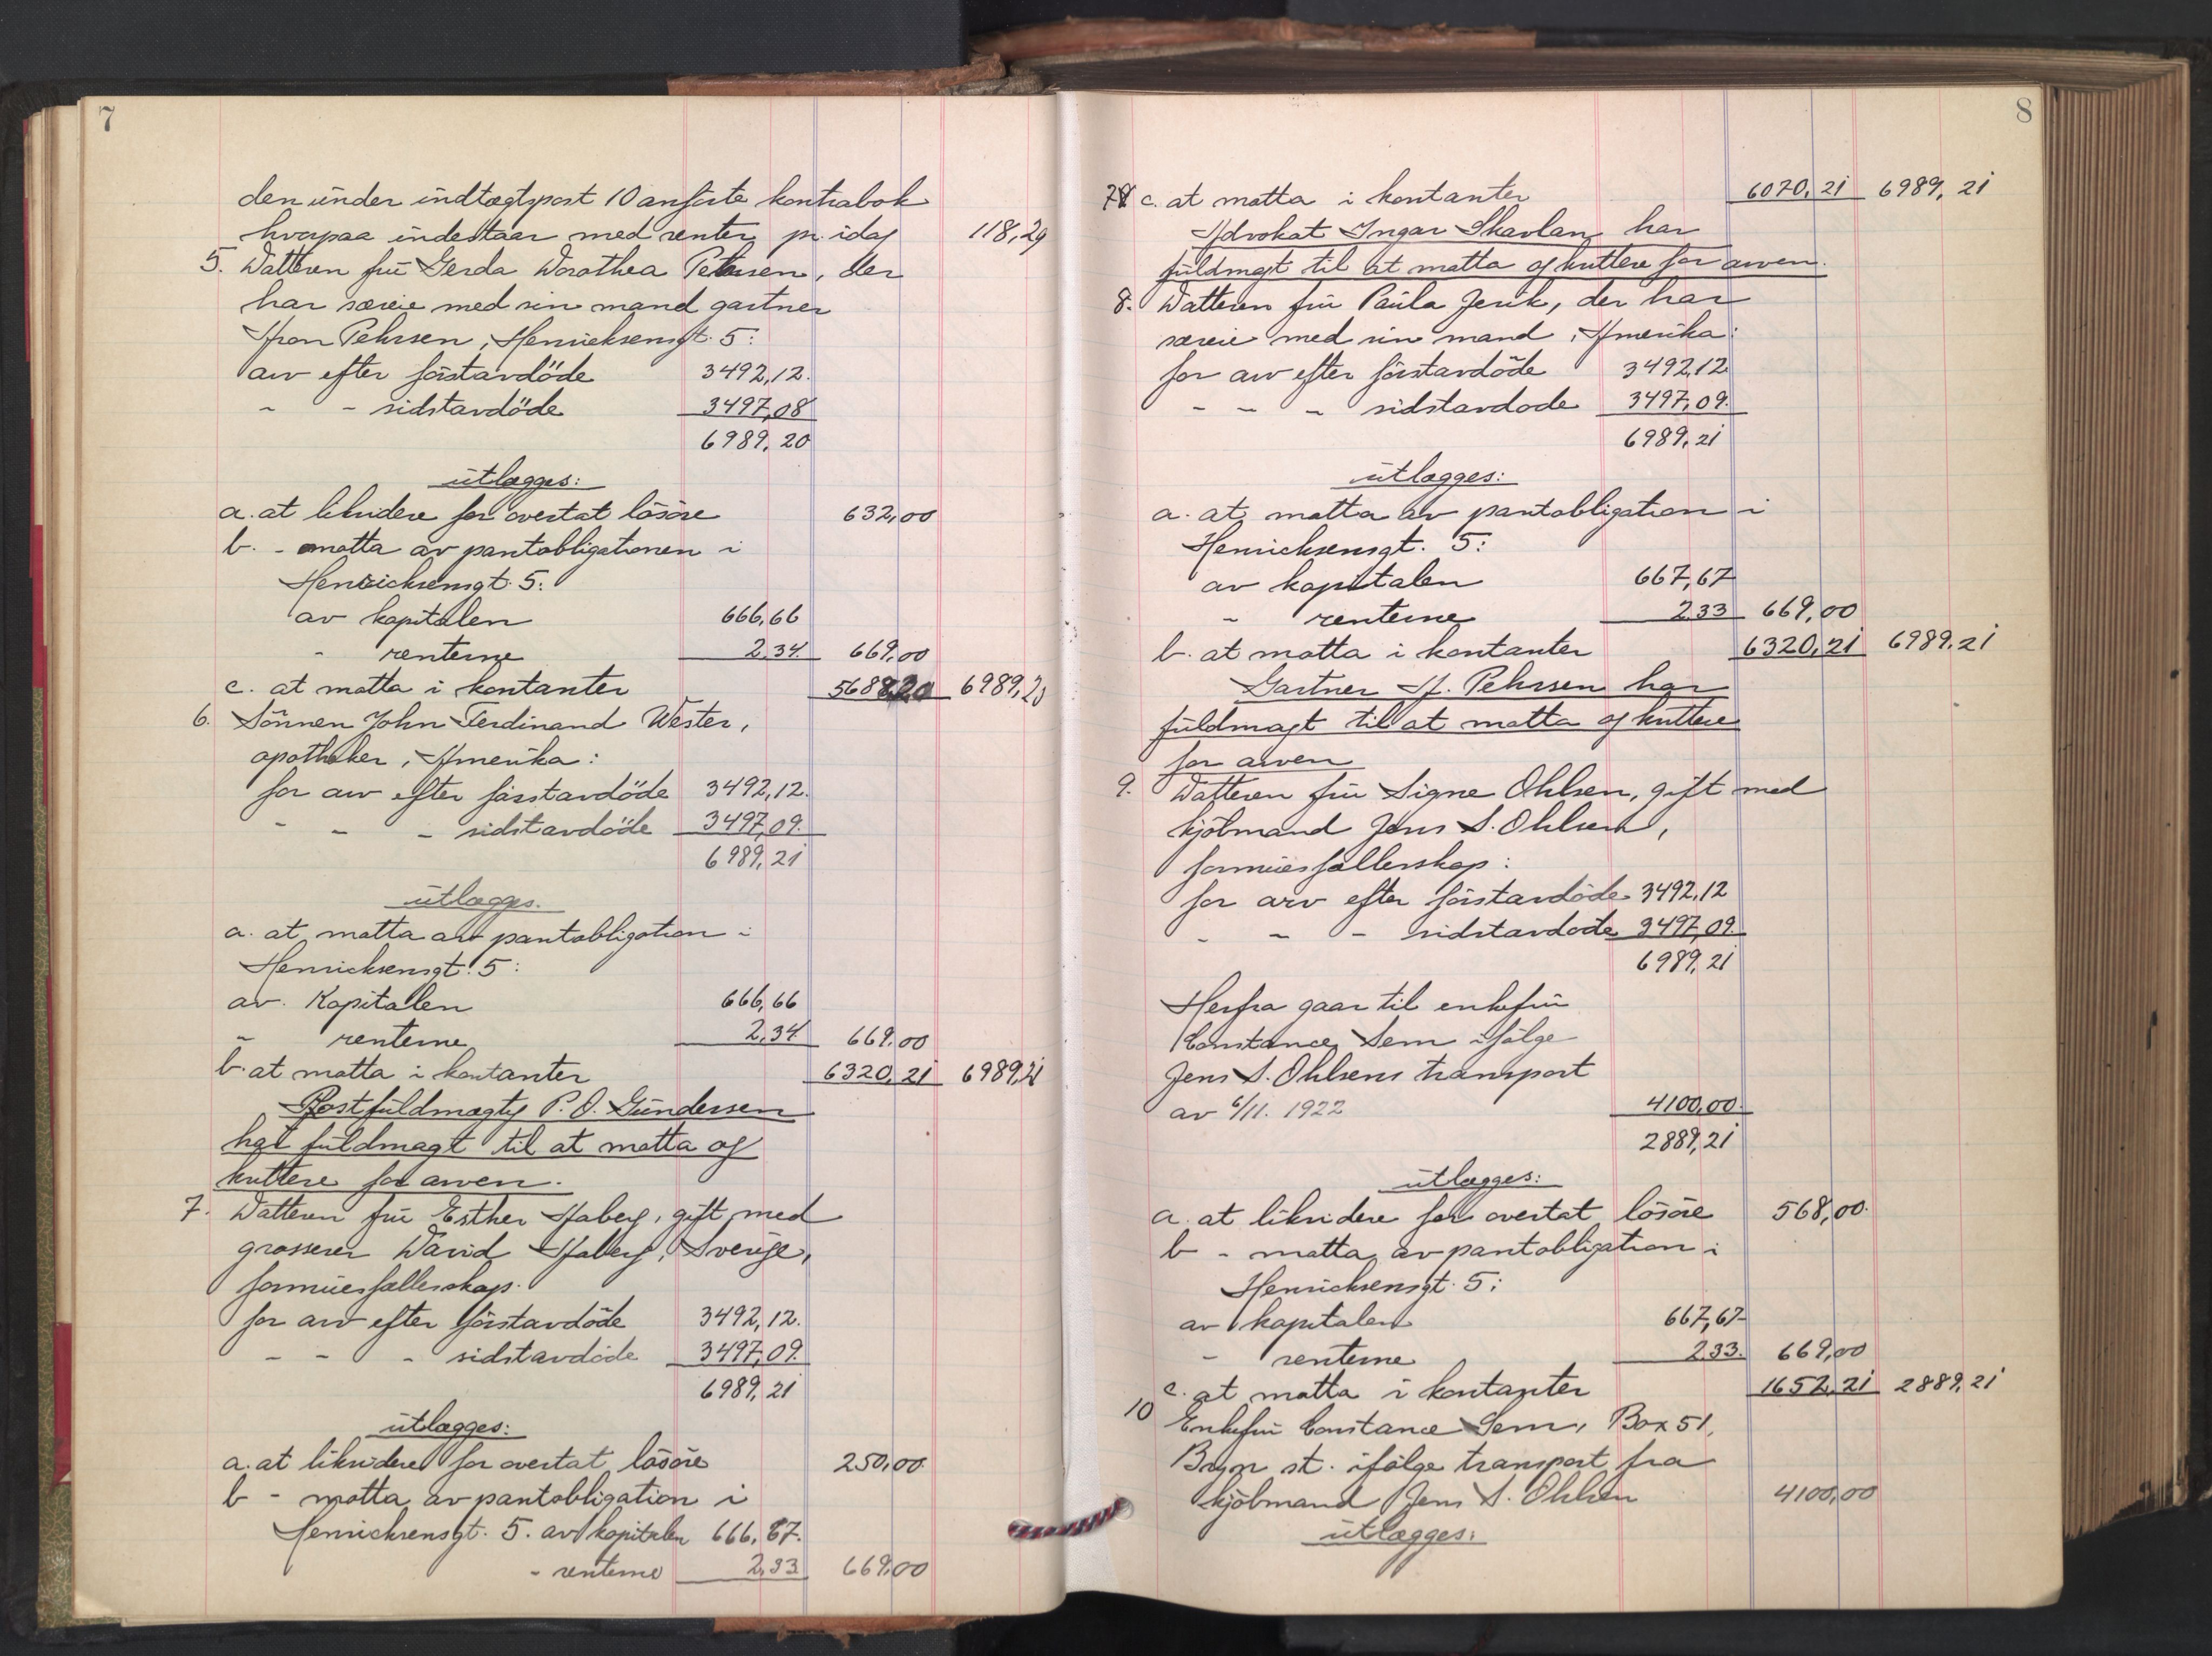 7
den under indtægtspost 10 anførte kontrabok
hvorpaa indestaar med renter pr. idag 118,29
5. Datteren fru Gerda Dorothea Pehrsen, der
har særeie med sin mand gartner
Aron Pehrsen, Henricksensgt. 5:
arv efter førstavdöde 3492,12.
" - sidstavdöde 3497,08
6989,20
utlægges:
a. at likvidere for overtat løsøre 632,00
b. - motta av pantobligationen i
Henricksensgt. 5:
av kapitalen 666,66
- renterne 2,34. 669,00
c. at motta i kontanter 5688,20 6989,20
6. Sönnen John Ferdinand Wester,
apotheker, Amerika:
for arv efter førstavdöde 3492,12.
- - - sidstavdöde 3497,09.
6989,21
utlægges.
a. at motta av pantobligation i
Henricksensgt. 5:
av Kapitalen 666,66
- renterne 2,34 669.00
b. at motta i kontanter 6320,21 6989,21
Postfuldmægtig P. O. Gundersen
har fuldmagt til at motta og
kvittere for arven.
7. Datteren fru Esther Aaberg, gift med
grosserer David Aaberg, Sverige,
formuesfællesskap.
for arv efter førstavdöde 3492,12.
- - - sidstavdöde 3497,09.
6989,21
utlægges:
a. at likvidere for overtat løsøre 250,00.
b - motta av pantobligation i
Henricksensgt. 5. av kapitalen 666,67.
- renterne 2,33 669,00
8
7 c. at motta i kontanter 6070,21 6989,21
Advokat Ingar Skavlan har
fuldmagt til at motta og kvittere for arven.
8. Datteren fru Paula Jenk, der har
særeie med sin mand, Amerika:
for arv efter førstavdöde 3492,12
- - - sidstavdøde 3497,09.
6989,21
utlægges:
a. at motta av pantobligation i
Henricksensgt. 5:
av kapitalen 667,67
- renterne 2,33 669,00
b. at motta i kontanter 6320,21 6989,21
Gartner A. Pehrsen har
fuldmagt til at motta og kvittere
for arven
9. Datteren fru Signe Ohlsen, gift med
kjøbmand Jens S. Ohlsen,
formuesfællesskap:
for arv efter førstavdøde 3492,12
- - - sidstavdøde 3497,09.
6989,21
Herfra gaar til enkefru
Constance Sem ifølge
Jens S. Ohlsens transport
av 6/11. 1922 4100,00.
2889,21
utlægges:
a. at likvidere for overtat løsøre 568,00.
b - motta av pantobligation i
Henricksensgt. 5:
av kapitalen 667,67
- renterne 2,33. 669,00
c. at motta i kontanter 1652,21 2889,21
10 Enkefru Constance Sem, Box 51,
Bryn st. ifølge transport fra
kjøbmand Jens S. Ohlsen 4100,00
utlægges: